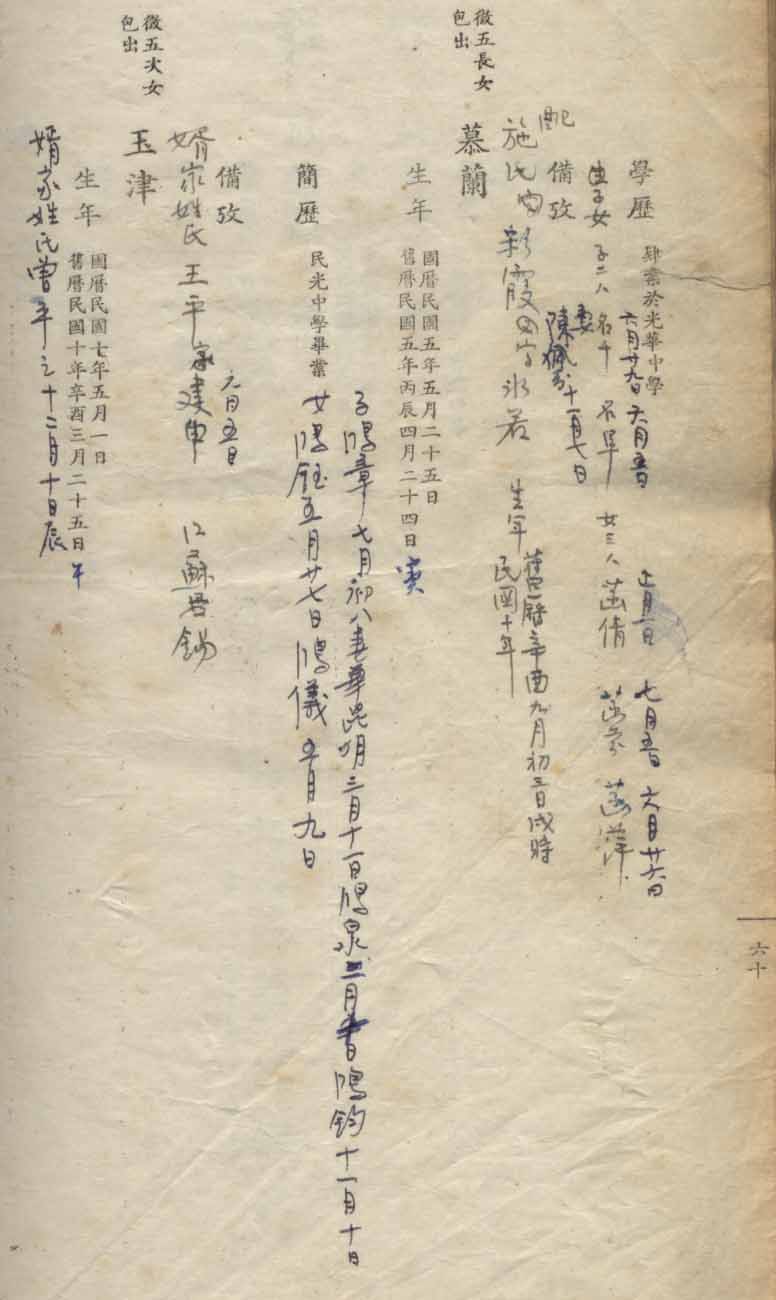 六十
學歷 肄業於光華中學
六月廿九日 六月五日 正月一日 七月五日 六月廿六日
生子女 子二人 名 女三人 菡倩 菡 菡萍
備攷 妻 陳佩 十一月七日
配 施氏 新霞 字冰若 生年 舊曆辛酉九月初三日戌時
民國十年
徵五長女
包出
慕蘭
生年 國曆民國五年五月二十五日
舊曆民國五年丙辰四月二十四日 寅
子鴻章七月初八 華昆明三月十一日鴻泉二月 日鴻鈞十一月十日
簡歷 民光中學畢業 女鴻鈺五月廿七日鴻儀 五月九日
備攷 六月五日
婿家姓氏 王平 家建申 江蘇無錫
徵五次女
包出
玉津
生年 國曆民國七年五月一日
舊曆民國十年辛酉三月二十五日 午
婿家姓氏曾平之十二月十日辰